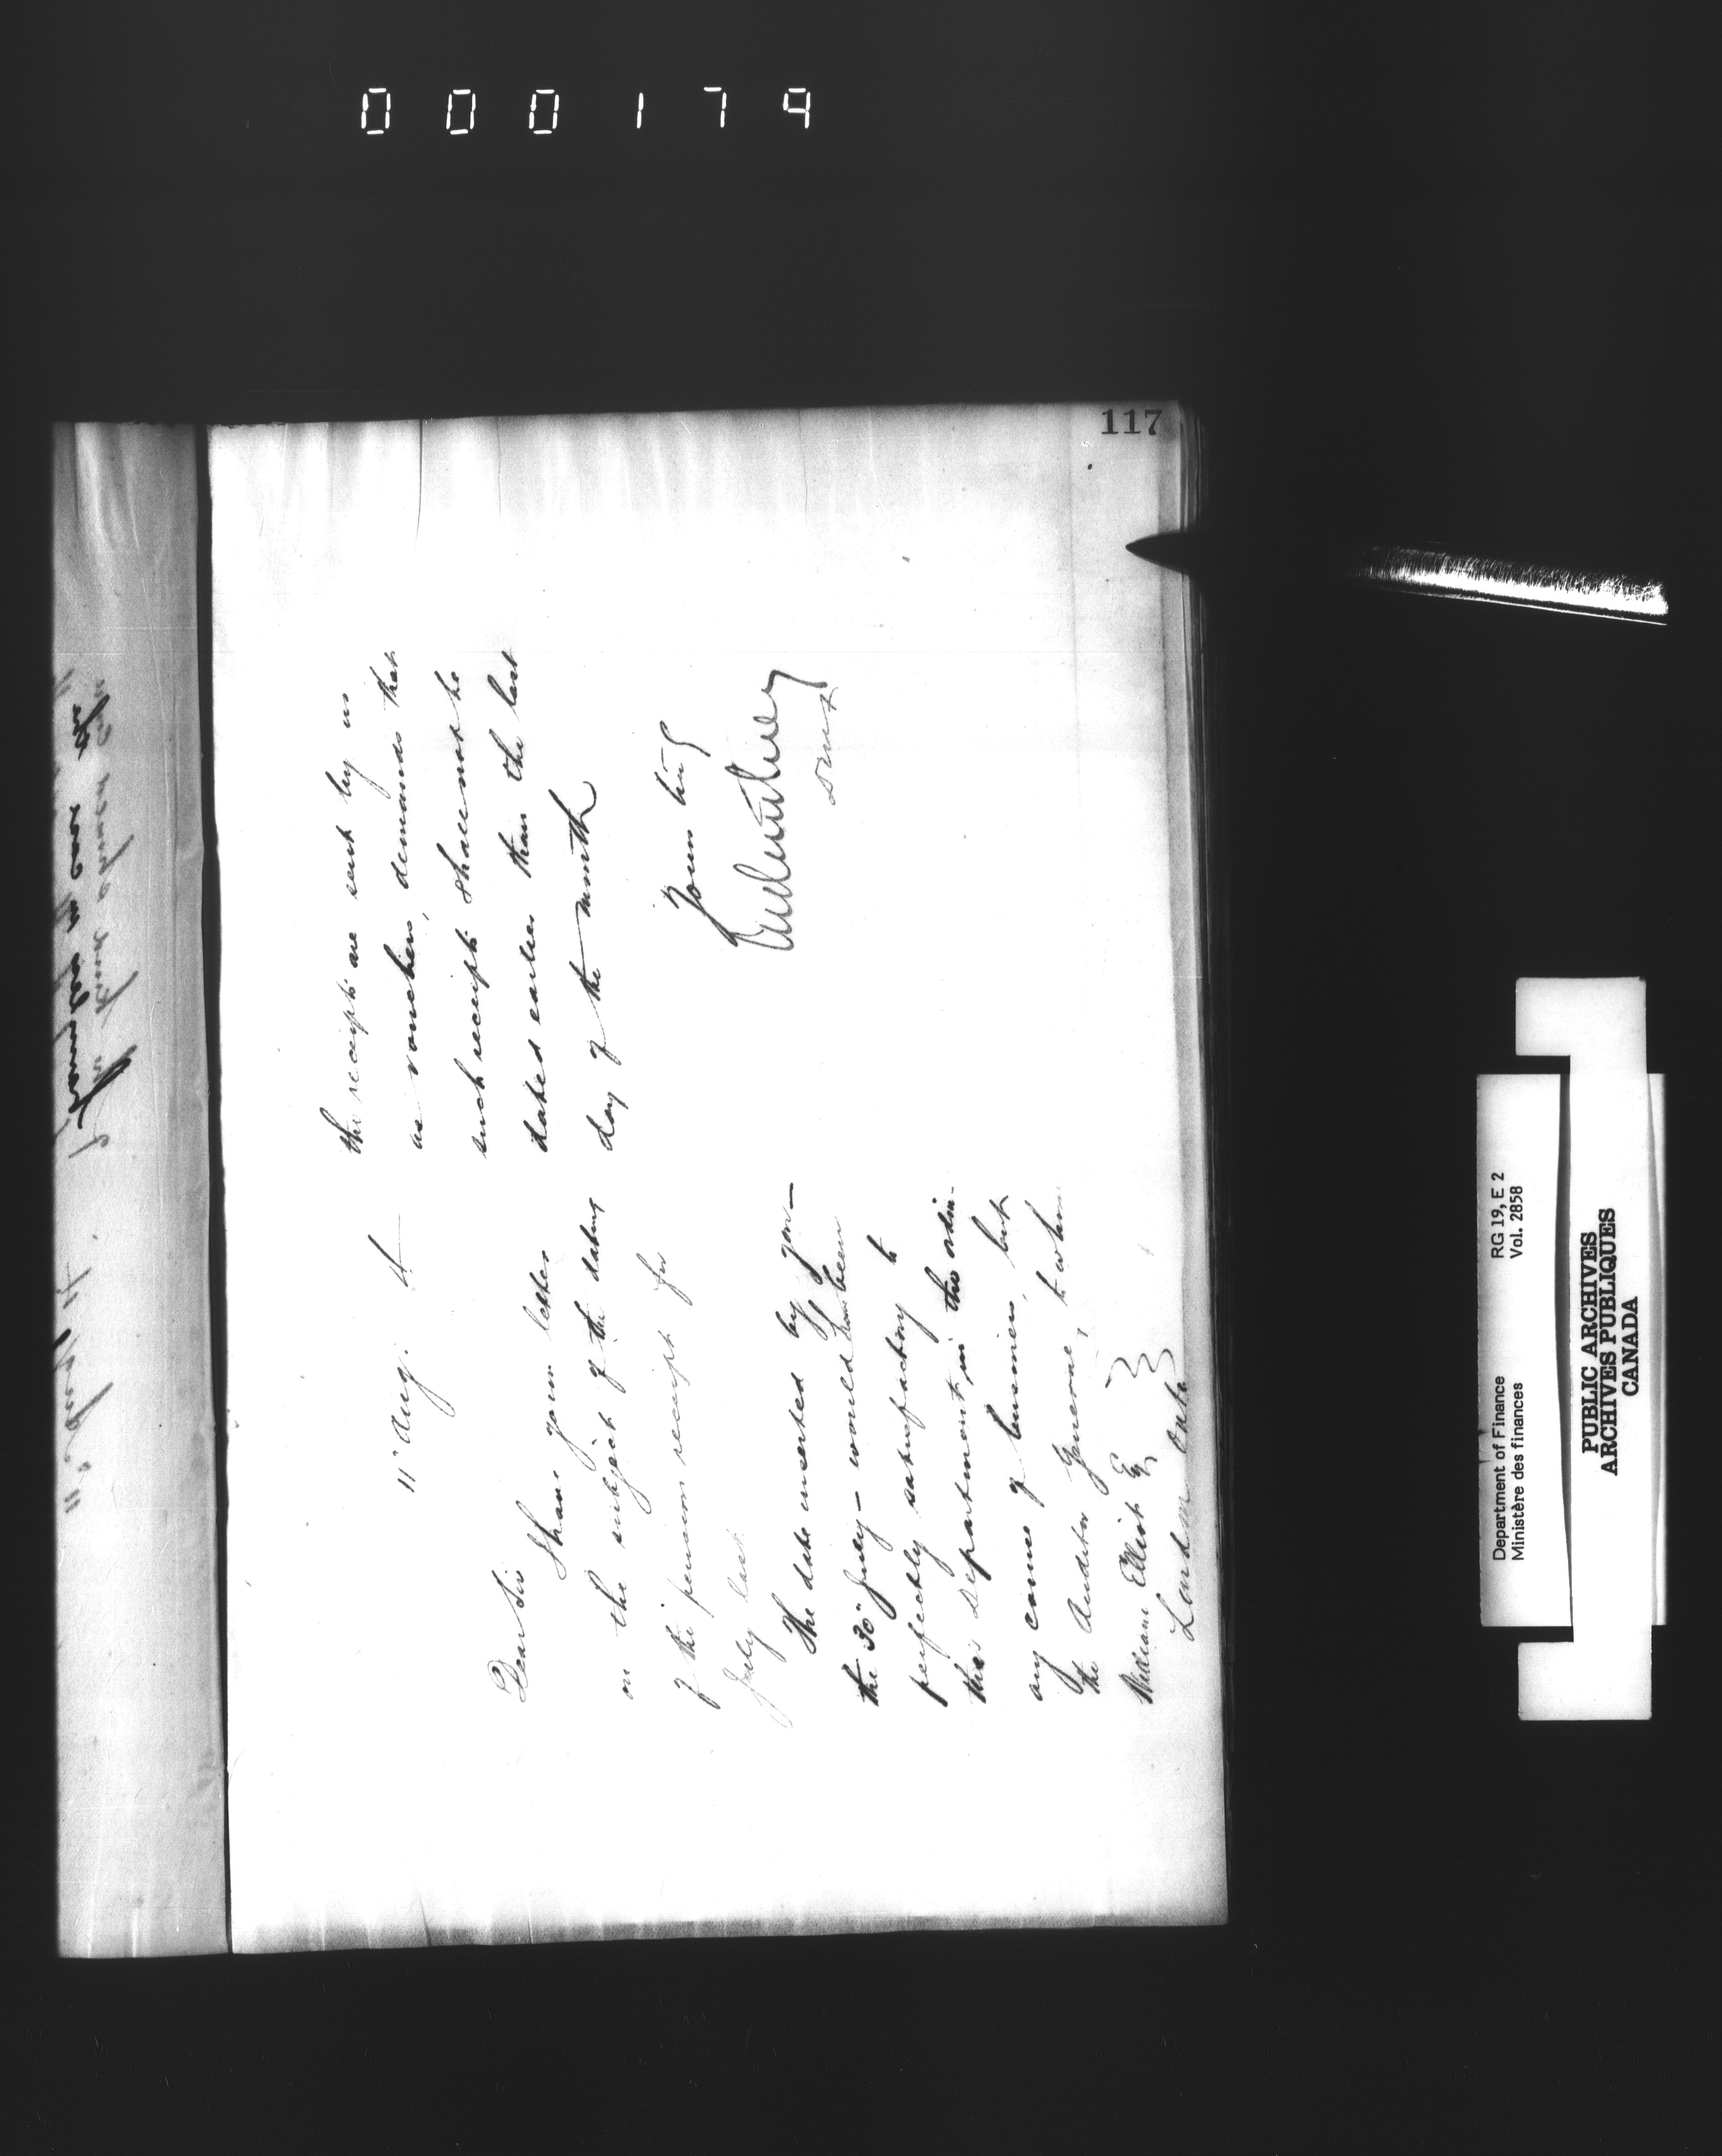 000179
117
11" Aug. 4
Dear Sir
I have your letter
on the subject of the dating
of the pension receipt for
July last.
The date inserted by you—
the 30" July — would have been
perfectly satisfactory to
this department, in the ordin-
ary course of business, but
the Auditor General, to whom
William Ellist Esq
London Ont.
the receipts are sent by us
as vouchers, demands that
such receipts shall not be
dated earlier than the last
day of the month
Yours truly
DMF
Department of Finance RG 19, E 2
Ministère des finances Vol. 2858
PUBLIC ARCHIVES
ARCHIVES PUBLIQUES
CANADA